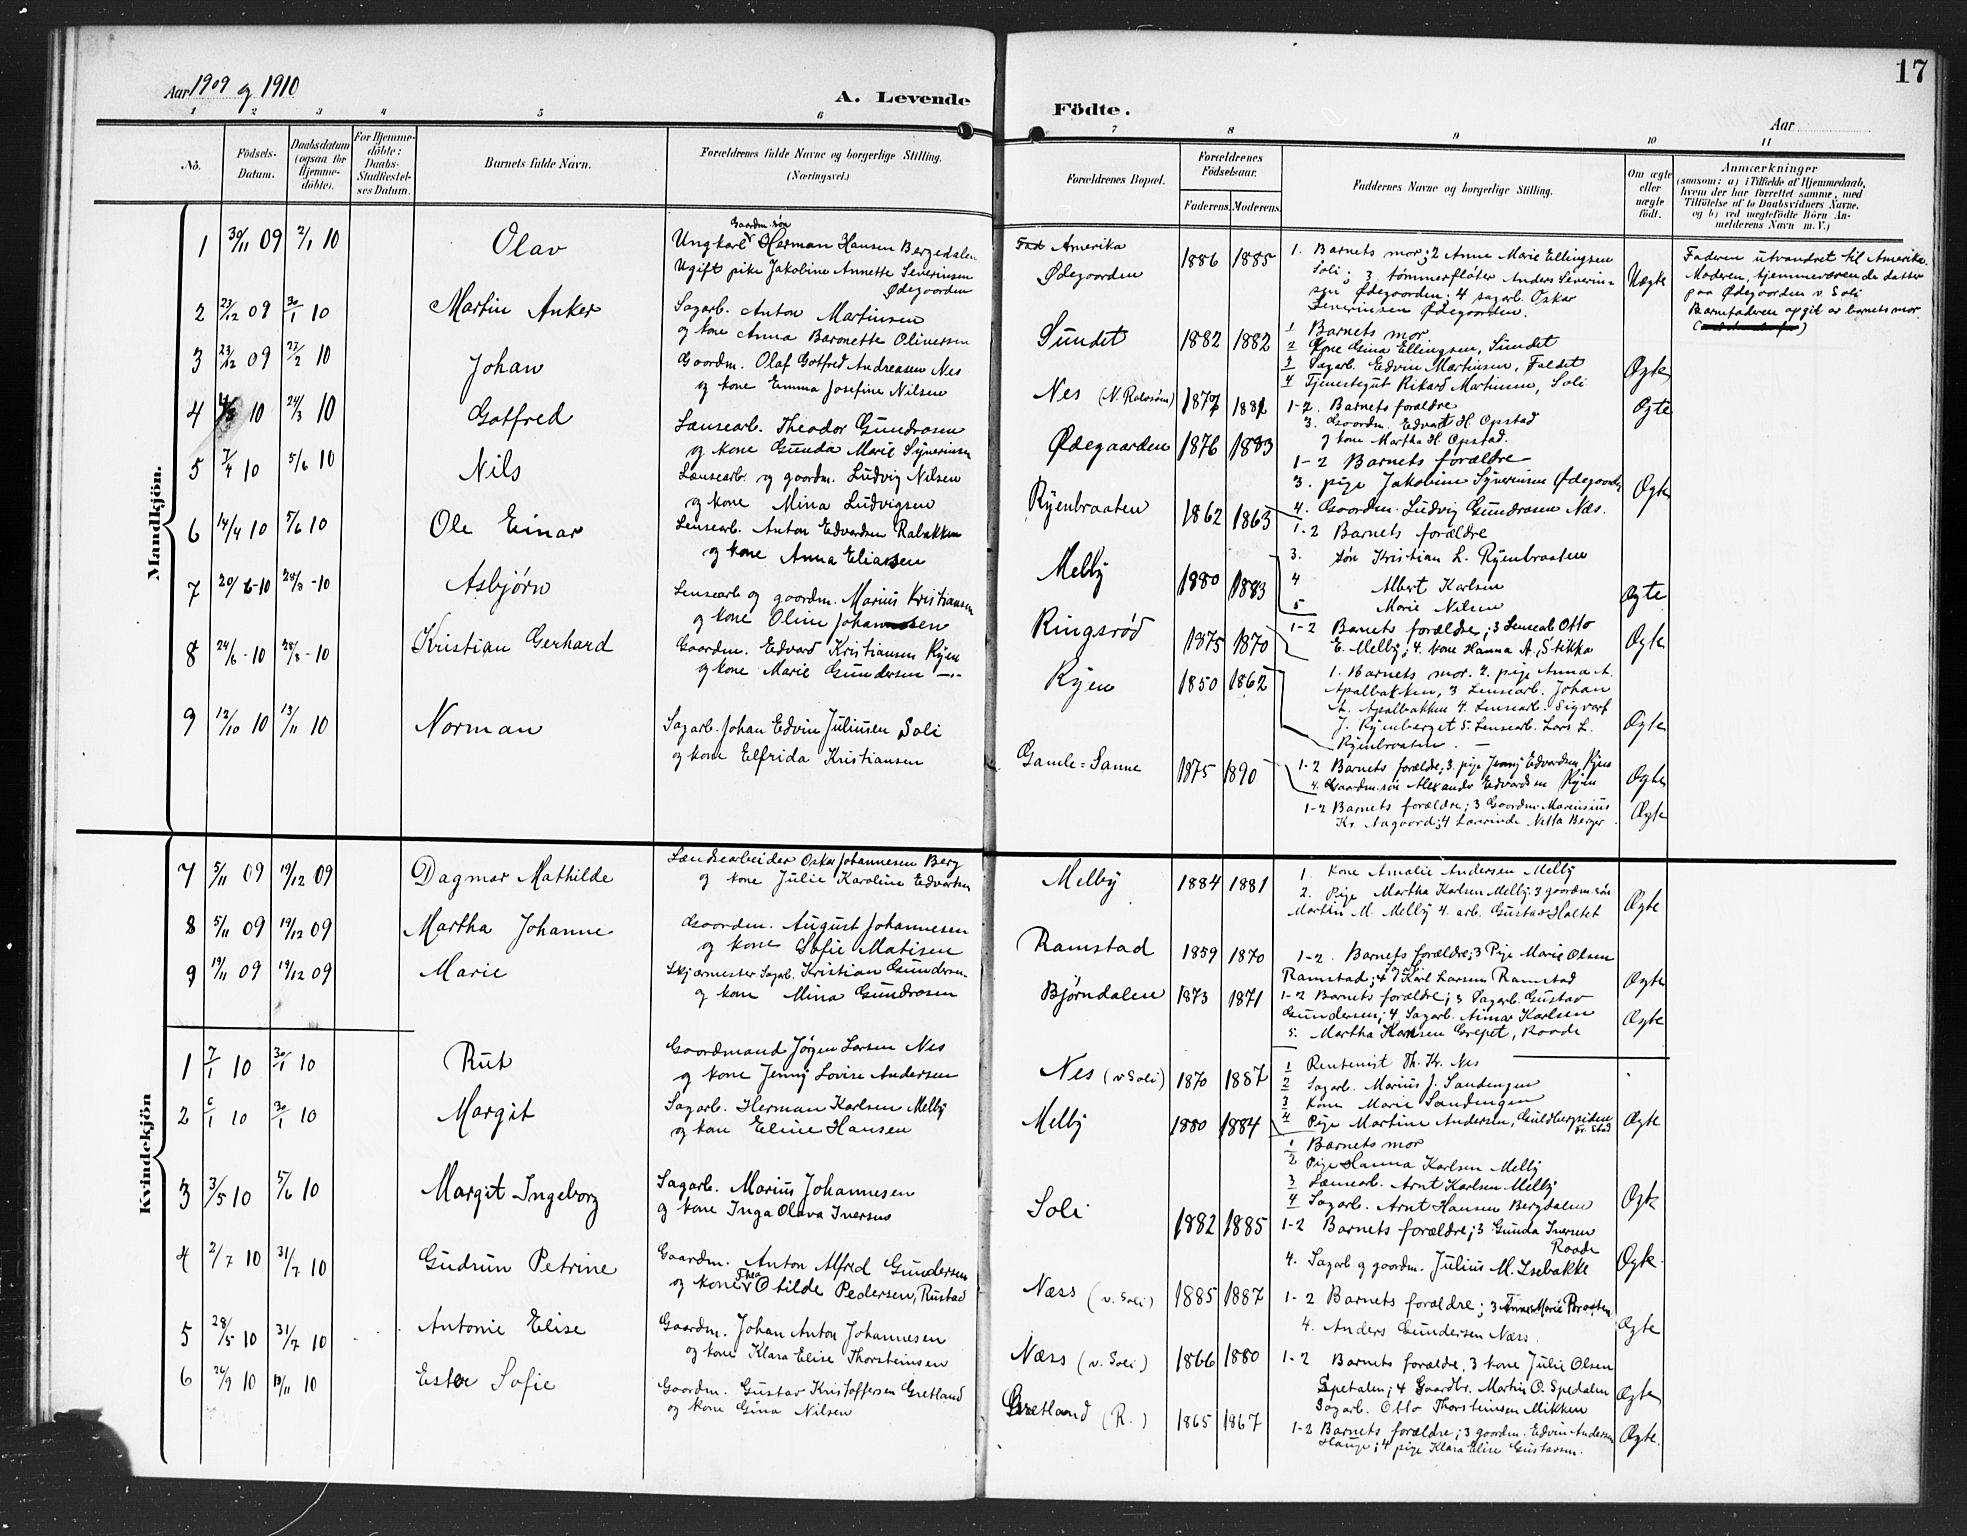 17
Aar 1909 og 1910
A. Levende Födte.
Aar
1 2 3 4 5 6 7 8 9 10 11
No.
Födsels-Datum.
Daabsdatum (ogsaa for Hjemme-döbte).
For Hjemme-döbte: Daabs-Stadfæstel-ses Datum.
Barnets fulde Navn.
Forældrenes fulde Navne og borgerlige Stilling. (Næringsvei.)
Forældrenes Bopæl.
Forældrenes Födselsaar.
Faderens. Moderens.
Faddernes Navne og borgerlige Stilling.
Om ægte eller uægte födt.
Anmærkninger
(saasom: a) i Tilfælde af Hjemmedaab, hvem der har forrettet samme, med Tilföielse af to Daabsvidners Navne, og b) ved uægtefödte Börn An-melderens Navn m. V.)
Mandkjön.
1 30/11 09 2/1 10 Olav
Gaardm. søn
Ungkarl Herman Hansen Bergedalen
Ugift pike Jakobine Annette Severinsen
Ødegaarden
Amerika
Ødegaarden
1886 1885
1. Barnets mor; 2 Anne Marie Ellingsen
Soli; 3 tømmerfløter Anders Severin-
sen Ødegaarden; 4 sagarb. Oskar
Severinsen Ødegaarden.
Uægte
Faderen utvandret til Amerika.
Moderen, hjemmeværende datter
paa Ødegaarden v. Soli
Barnefaderen opgit av barnets mor.
2 23/12 09 30/1 10 Martin Anker
Sagarb. Anton Martinsen
og kone Anna Baronette Oliversen
Sundet
1882 1882
1 Barnets mor
2 Kone Gina Ellingsen, Sundet
3 Sagarb. Edvin Martinsen, Faldet
4 Tjenestegut Rikard Martinsen, Soli
Ægte
3 23/12 09 27/2 10 Johan
Gaardm. Olaf Gotfred Andreasen Nes
og kone Emma Josefine Nilsen
Nes
1877 1881
1-2. Barnets forældre
3. Gaardm. Edvart H. Opstad
og kone Martha H. Opstad.
Ægte
4 10 24/3 10 Gotfred
Lænsearb. Theodor Gundrosen
og kone Gunda Marie Syverinsen
Ødegaarden
1876 1883
1-2 Barnets forældre
3. pige Jakobine Syverinsen Ødegaarden
4. Gaardm. Ludvig Gundrosen Næs.
Ægte
5 7/4 10 5/6 10 Nils
Lænsearb. og gaardm. Ludvig Nilsen
og kone Mina Ludvigsen
Ryenbraaten
1862 1863
1-2 Barnets forældre
3. søn Kristian L. Ryenbraaten
4 Albert Karlsen
5 Marie Nilsen
Ægte
6 14/4 10 5/6 10 Ole Einar
Lensearb. Anton Edvardsen Rabakken
og kone Anna Eliassen
Melby
1880 1883
1-2 Barnets forældre; 3 Lensearb Otto
E. Melby; 4. kone Hanna A. Stikka
Ægte
7 20/6-10 28/8-10 Asbjørn
Lensearb og gaardm. Marius Kristiansen
og kone Oline Johannesen
Ringsrød
1875 1870
1. Barnets mor. 2. pige Anna A.
Apalbakken, 3 Lensearb. Johan
A. Apalbakken 4. Lensearb. Sigvart
J. Ryenberget 5. Lensearb. Lars L.
Ryenbraaten.
Ægte
8 24/6-10 28/8-10 Kristian Gerhard
Gaardm. Edvard Kristiansen Ryen
og kone Marie Gundersen
Ryen
1850 1862
1-2 Barnets forældre; 3. pige Jenny Edvardsen Ryen
4. Gaardm. søn Alexander Edvardsen Ryen
Ægte
9 12/10 10 13/11 10 Norman
Sagarb. Johan Edvin Juliusen Soli
og kone Elfrida Kristiansen
Gamle-Sanne
1875 1890
1-2 Barnets forældre; 3 Gaardm. Marensius
Kr. Aagaard; 4 Lærerinde Netta Berger
Ægte
Kvindekjön
7 5/11 09 19/12 09 Dagmar Mathilde
Lændsearbeider Oskar Johannesen Berg
og kone Julie Karoline Edvartsen
Melby
1884 1881
1. Kone Amalie Andersen Melby
2. Pige Martha Karlsen Melby. 3 gaardm. søn
Martin M. Melby 4. arb. Gustav Holtet
Ægte
8 5/11 09 19/12 09 Martha Johanne
Gaardm. August Johannesen
og kone Sofie Matisen
Ramstad
1859 1870
1-2. Barnets forældre; 3 Pige Marie Olsen
Ramstad; 4 Karl Larsen Ramstad
Ægte
9 19/11 09 19/12 09 Marie
Skjærmester Sagarb. Kristian Gundersen
og kone Mina Gundrosen
Bjørndalen
1873 1871
1-2 Barnets forældre; 3 Sagarb. Gustav
Gundersen; 4 Sagarb. Aimar Karlsen
5. Martha Hansen Grepet, Raade
Ægte
1 7/1 10 30/1 10 Rut
Gaardmand Jørgen Larsen Nes
og kone Jenny Lovise Andersen
Nes (v Soli)
1870 1887
1 Rentenist Th. Kr. Nes
2 Sagarb. Marius J. Sandengen
3 Kone Marie Sandengen
4 Pige Martine Andersen, Guldbergsiden
Fr. Stad
Ægte
2 6/1 10 30/1 10 Margit
Sagarb. Herman Karlsen Melby
og kone Eline Hansen
Melby
1880 1884
1 Barnets mor
2 Pige Hanna Karlsen Melby
3 Lænsearb. Arnt Karlsen Melby
4 Sagarb. Arnt Hansen Bergdalen
Ægte
3 3/5 10 5/6 10 Margit Ingeborg
Sagarb. Marius Johannesen
og kone Inga Olava Iversen
Soli
1882 1885
1-2 Barnets forældre; 3 Gunda Iversen
Raade
4. Sagarb og gaardm. Julius M. Isebakke
Ægte.
4 2/7 10 31/7 10 Gudrun Petrine
Gaardm. Anton Alfred Gundersen
og kone Thea Otilde Pedersen, Rustad
Næss (v. Soli)
1885 1887
1-2 Barnets forældre; 3 Anne Marie Braaten
4. Anders Gundersen Næss.
Ægte
5 28/5 10 31/7 10 Antonie Elise
Gaardm. Johan Anton Johannesen
og kone Klara Elise Thorsteinsen
Næss (v. Soli)
1866 1880
1-2 Barnets forældre, 3 kone Julie Olsen
Spetalen; 4 Gaardbr. Martin O. Spedalen
Sagarb. Otto Thorsteinsen Mikken
Ægte
6 24/9 10 13/11 10 Ester Sofie
Gaardm. Gustav Kristoffersen Gretland
og kone Gina Nilsen
Gretland (R.)
1865 1867
1-2 Barnets forældre; 3 gaardm. Edvin Andersen
Hauge; 4 pige Klara Elise Gustavsen.
Ægte.